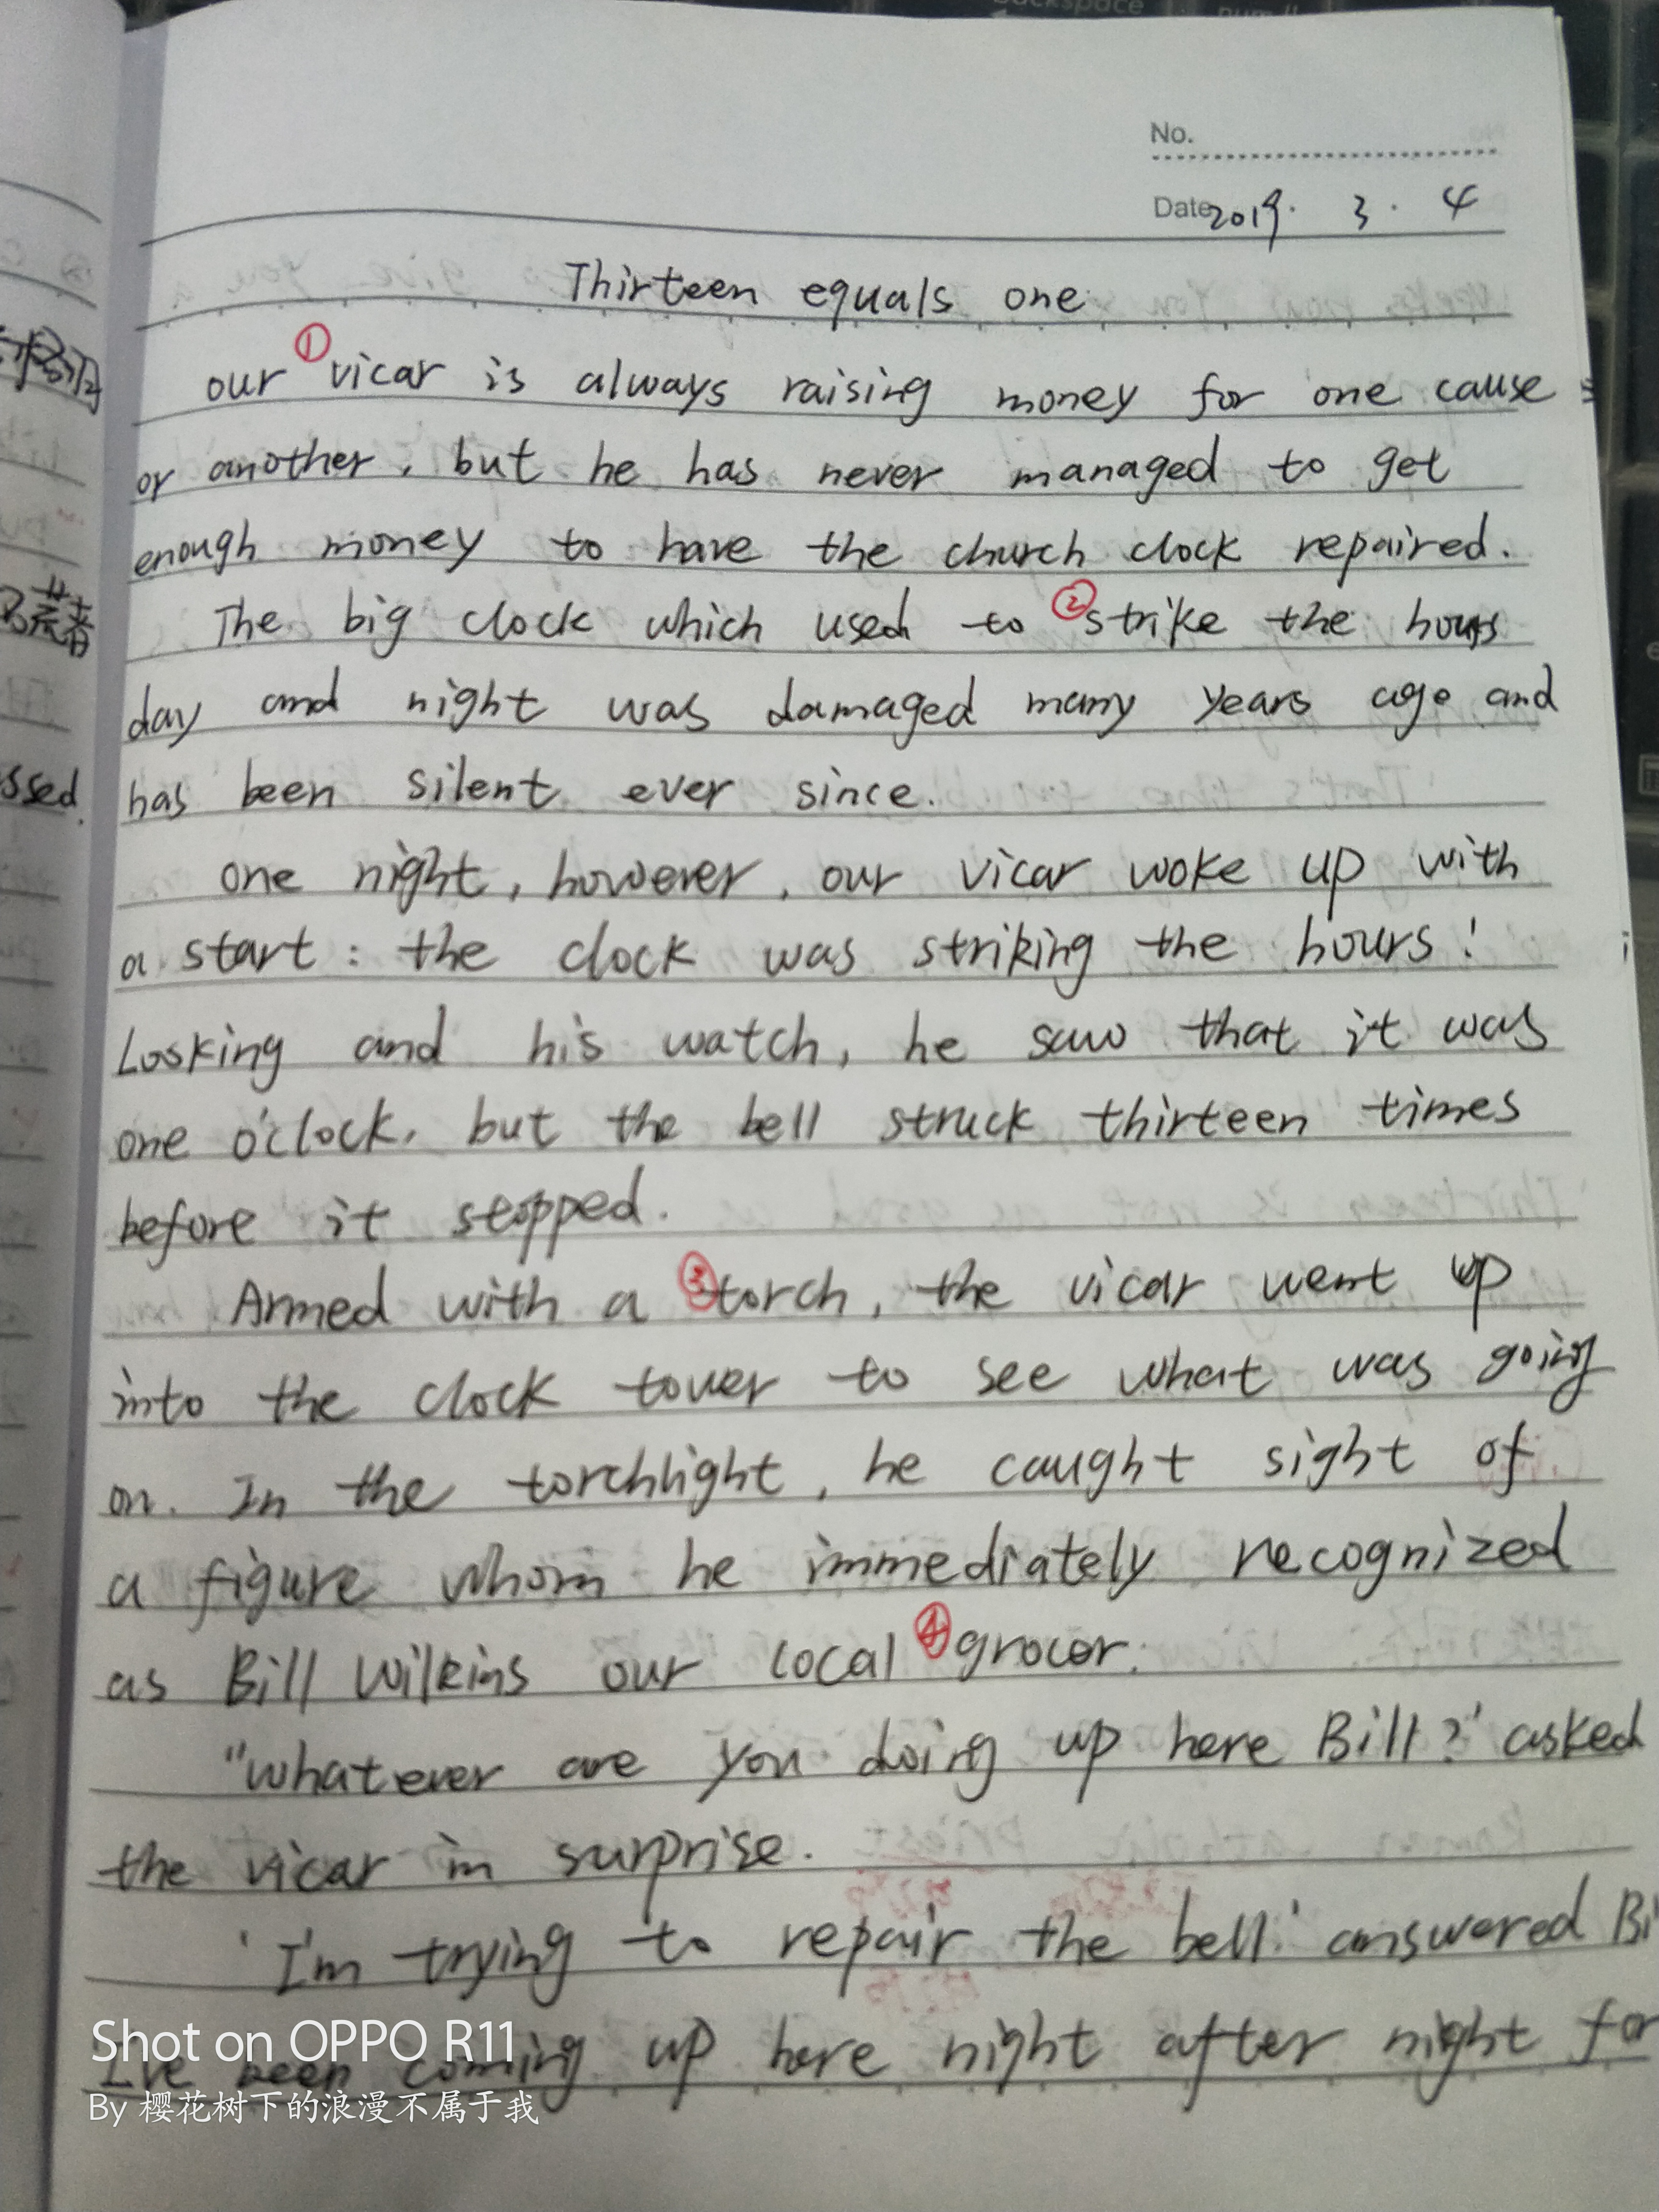 No.
Date 2019. 3. 4
Thirteen equals one
our ①vicar is always raising money for one cause
or another, but he has never managed to get
enough money to have the church clock repaired.
The big clock which used to ②strike the hours
day and night was damaged many years ago and
has been silent ever since.
one night, however, our vicar woke up with
a start: the clock was striking the hours!
Looking and his watch, he saw that it was
one o'clock, but the bell struck thirteen times
before it stopped.
Armed with a ③torch, the vicar went up
into the clock tower to see what was going
on. In the torchlight, he caught sight of
a figure whom he immediately recognized
as Bill Wilkins our local ④grocer.
"whatever are you doing up here Bill?' asked
the vicar in surprise.
'I'm trying to repair the bell.' answered Bi
I've been coming up here night after night for
ssed.
Shot on OPPO R11
By 樱花树下的浪漫不属于我